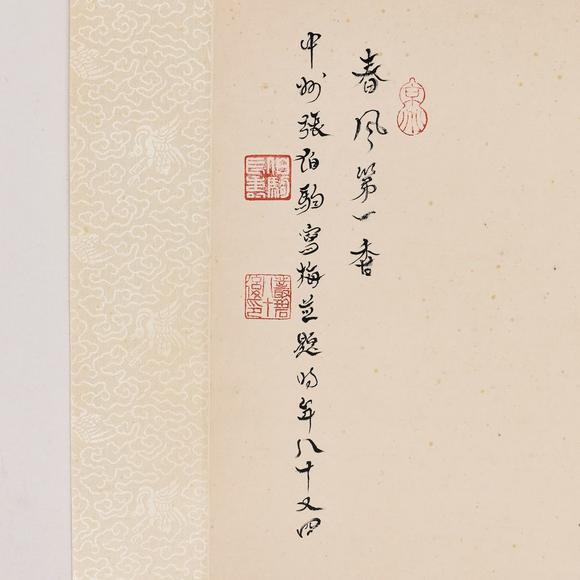 春风第一香
中州張伯駒寫梅並題時年八十又四
京兆